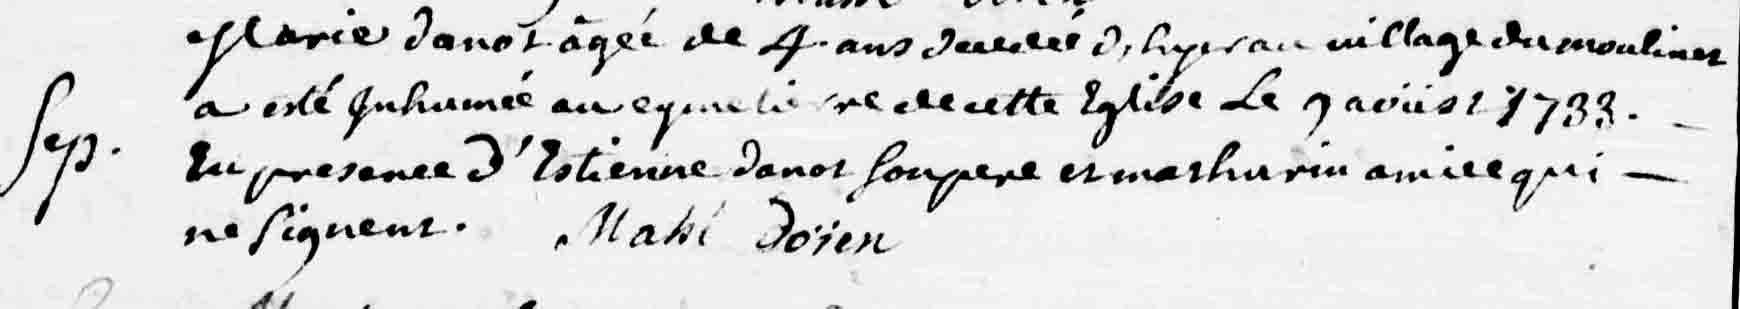 Marie danot âgée de 4 ans decedée d'hyer au village du moulinet
Sep. a esté Inhumée au cymetiere de cette Eglise Le 9 aoüst 1733.
En presence d'Estienne danot son pere et mathurin amice qui
ne signent. Mahé Doien